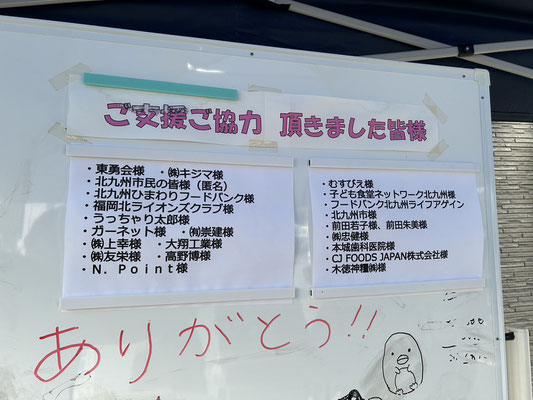 ご支援ご協力 頂きました皆様
・東勇会様 ・㈱キジマ様
・北九州市民の皆様（匿名）
・北九州ひまわりフードバンク様
・福岡北ライオンズクラブ様
・うっちゃり太郎様
・ガーネット様 ・㈲崇建様
・㈱上幸様 ・大翔工業様
・㈱友栄様 ・高野博様
・Ｎ．Ｐｏｉｎｔ様
・むすびえ様
・子ども食堂ネットワーク北九州様
・フードバンク北九州ライフアゲイン
・北九州市様
・前田若子様、前田朱美様
・㈱忠健様
・本城歯科医院様
・CJ FOODS JAPAN株式会社様
・木徳神糧㈱様
ありがとう!!